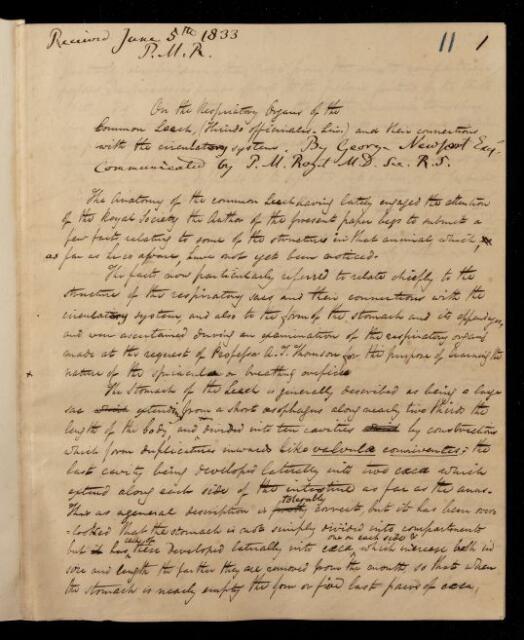 Received June 5th 1833
P. M. R.
11 1
On the Respiratory Organs of the
Common Leech, (Hirudo officinalis. Lin.) and their connections
with the circulatory system. By George Newport Esqr.
Communicated by P. M. Roget M.D. Sec. R.S.
The Anatomy of the common Leech having lately engaged the attention
of the Royal Society the Author of the present paper begs to submit a
few facts, relating to some of the structures in that animal, which,
as far as he is aware, have not yet been noticed.
The facts now particularly referred to relate chiefly to the
structure of the respiratory sacs and their connections with the
circulatory system, and also to the form of the stomach and its appendages,
and were ascertained during an examination of the respiratory organs
made at the request of Professor A. T. Thomson for the purpose of learning the
nature of the spiracula or breathing orifices
x
The Stomach of the Leech is generally described as being a large
sac extending from a short œsophagus along nearly two thirds the
length of the body, and divided into ten cavities by constrictions
which form duplicatures inwards like valvulæ conniventes; the
last cavity being developed laterally into two cæca which
extend along each side of the intestine as far as the anus.
This as a general description is tolerably correct, but it has been over
-looked that the stomach is not simply divided into compartments
but that each of these developed laterally into cæca one on each side & which increase both in
size and length the farther they are removed from the mouth, so that when
the stomach is nearly empty the four or five last pairs of cæca,